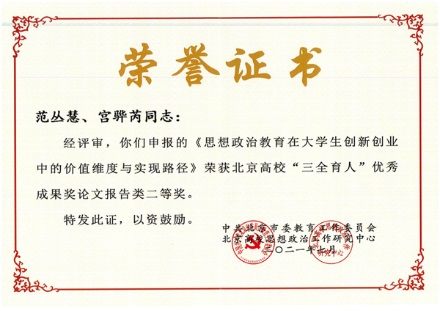 荣誉证书
范丛慧、宫骅芮同志：
经评审，你们申报的《思想政治教育在大学生创新创业
中的价值维度与实现路径》荣获北京高校“三全育人”优秀
成果奖论文报告类二等奖。
特发此证，以资鼓励。
中共北京市委教育工作委员会
北京高校思想政治工作研究中心
二〇二一年七月